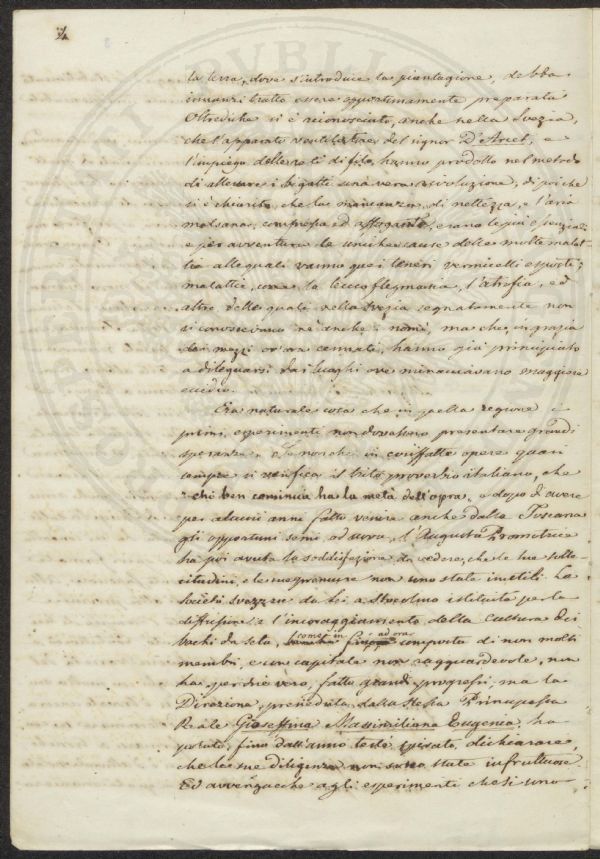 la terra, dove s'introduce la piantagione, debba
innanzi tratto essere opportunamente preparata
Oltrediche si è riconosciuto, anche nella Svezia,
che l'apparato ventilatore del signor D'Arcet, e
l'impiego delle reti di filo, hanno prodotto nel metodo
di allevare i bigatti una vera rivoluzione, di poi che
si è chiarito, che la mancanza di nettezza, e l'aria
malsana, compressa ed affogante, erano le più essenziali
e per avventura le uniche cause delle molte malat-
tie alle quali vanno que' i teneri vermicelli esposti;
malattie, come la leucoflegmasia, l'atrofia, ed
altre, delle quali nella Svezia segnatamente non
si conoscevano nè anche i nomi, ma che, in grazia
dei mezzi or'ora cennati, hanno già principiato
a dileguarsi dai luoghi ove minacciavano maggiore
eccidio.
Era naturale cosa che in quella regione i
primi esperimenti non dovessero presentare grandi
speranze. Se non che in cosiffatte opere quasi
sempre si verifica il trito proverbio italiano, che
chi ben comincia ha la metà dell'opra, e dopo di avere
per alcuni anni fatto venire anche dalla Toscana
gli opportuni semi, ad uova, l'Augusta Promotrice
ha poi avuta la soddisfazione di vedere, che le sue solle-
citudini, e le sue premure non sono state inutili. La
Società svezzese da lei a Stocolmo istituita per la
diffusione e l'incoraggiamento della cultura dei
bachi da seta, comechè in fino ad ora composta di non molti
membri, e un capitale non ragguardevole, non
ha, per dir vero, fatto grandi progressi, ma la
Direzione, preseduta dalla stessa Principessa
Reale Gioseffina Massimiliana Eugenia, ha
potuto, fino dall'anno testè spirato, dichiarare,
che le sue diligenze non sono state infruttuose.
Ed avvengacche agli esperimenti che si sono